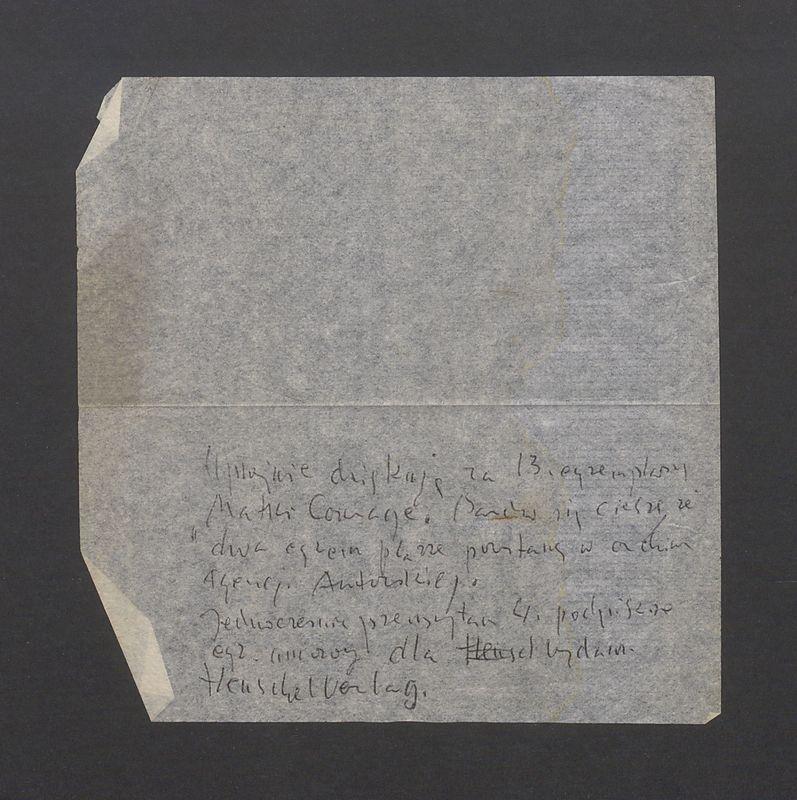 Uprzejmie dziękuję za 13. egzemplarzy
"Matki Courage. Bardzo się cieszę, że
dwa egzem plarze powstaną w archiw
Agencji Autorskiej.
Jednocześnie przesyłam 4. podpisane
egz. umowy dla Hensch wydawn.
Henschelverlag.